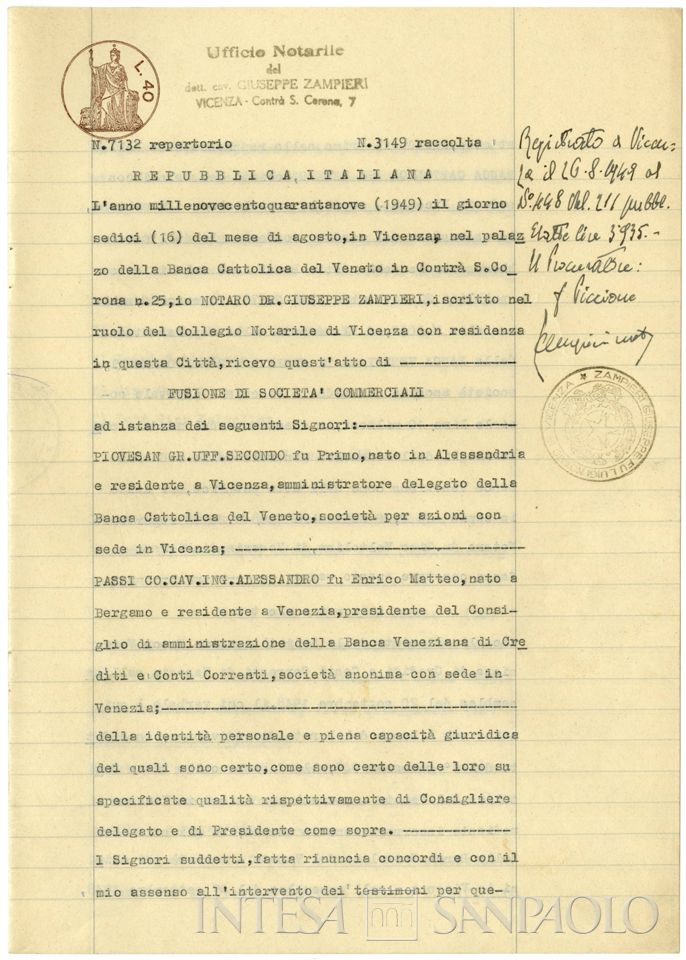 L. 40
Ufficio Notarile
del
dott. cav. GIUSEPPE ZAMPIERI
VICENZA - Contrà S. Corona, 7
N.7132 repertorio N.3149 raccolta
REPUBBLICA ITALIANA
L'anno millenovecentoquarantanove (1949) il giorno
sedici (16) del mese di agosto,in Vicenza, nel palaz
zo della Banca Cattolica del Veneto in Contrà S.Co
rona n.25,io NOTARO DR.GIUSEPPE ZAMPIERI,iscritto nel
ruolo del Collegio Notarile di Vicenza con residenza
in questa Città,ricevo quest'atto di
FUSIONE DI SOCIETA' COMMERCIALI
ad istanza dei seguenti Signori:
PIOVESAN GR.UFF.SECONDO fu Primo,nato in Alessandria
e residente a Vicenza,amministratore delegato della
Banca Cattolica del Veneto,società per azioni con
sede in Vicenza;
PASSI CO.CAV.ING.ALESSANDRO fu Enrico Matteo,nato a
Bergamo e residente a Venezia,presidente del Consi-
glio di amministrazione della Banca Veneziana di Cre
diti e Conti Correnti,società anonima con sede in
Venezia;
della identità personale e piena capacità giuridica
dei quali sono certo,come sono certo delle loro su
specificate qualità rispettivamente di Consigliere
delegato e di Presidente come sopra.
I Signori suddetti,fatta rinuncia concordi e con il
mio assenso all'intervento dei testimoni per que-
Registrato a Vicen-
za il 26.8.1949 al
N° 448 Vol. 211 pubbl.
Esatte lire 3935.-
Il Procuratore:
f Piccione
ZAMPIERI GIUSEPPE FU LUIGI
VICENZA
INTESA SANPAOLO